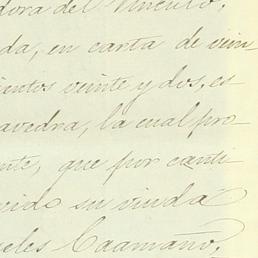 dora del Vinculo,
da, en carta de vein
cientos veinte y dos, es
avedra, la cual pro-
nte, que por canti
cido su viuda
geles Caamaño,